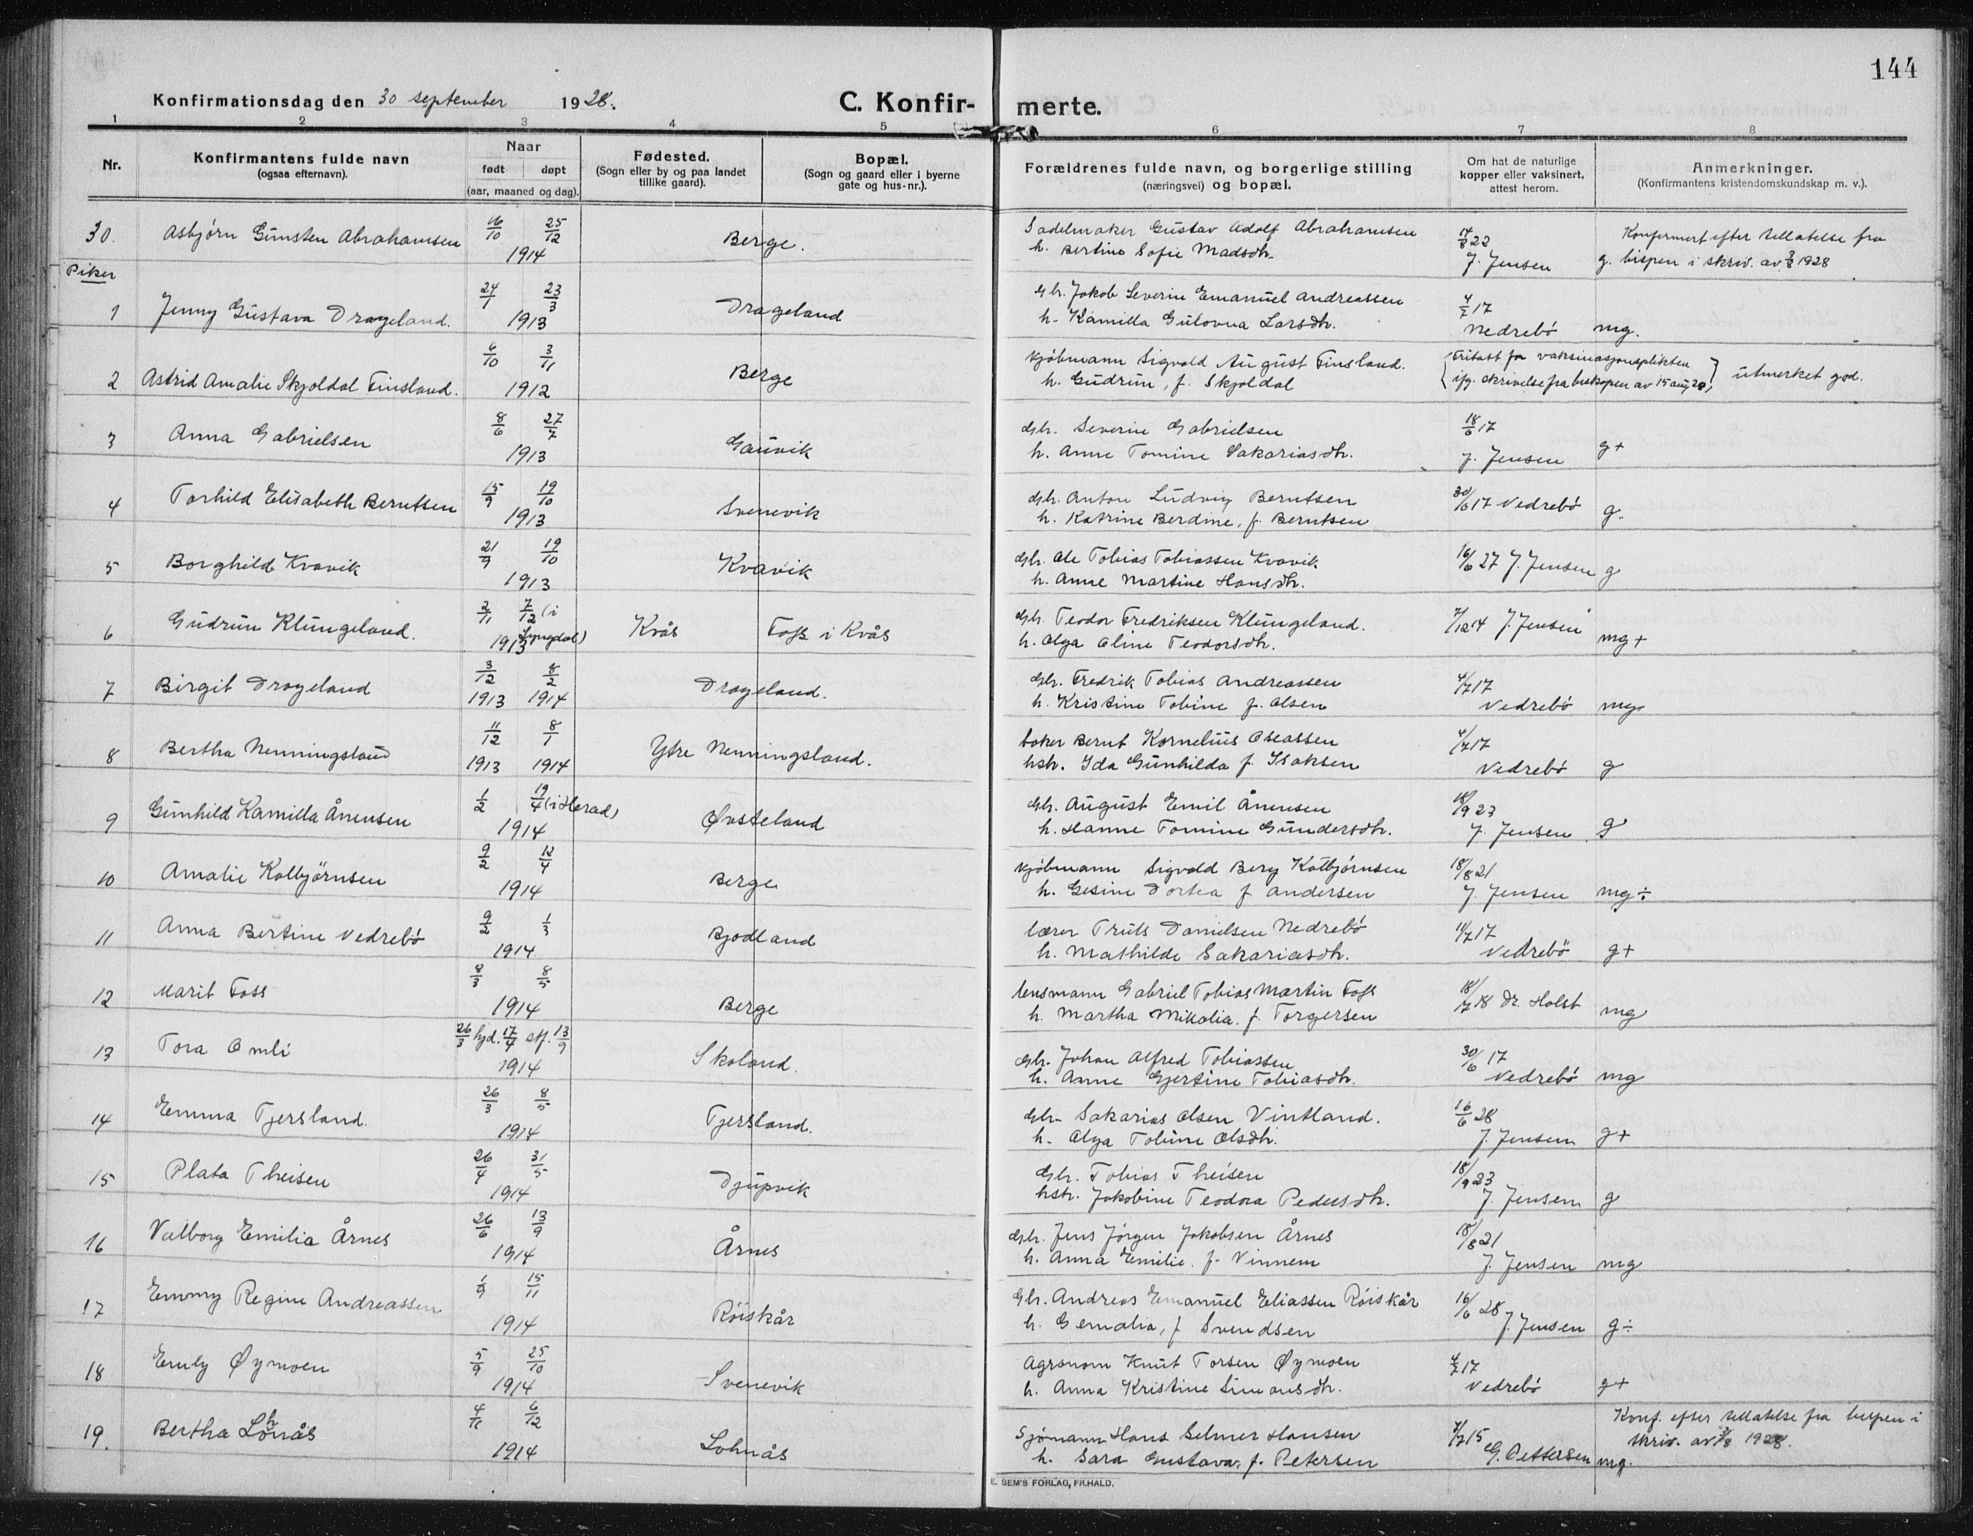 144
Konfirmationsdag den 30 september 1928. C. Konfir- merte.
1 2 3 4 5 6 7 8
Nr. Konfirmantens fulde navn (ogsaa efternavn). Naar født døpt (aar, maaned og dag). Fødested. (Sogn eller by og paa landet tillike gaard). Bopæl. (Sogn og gaard eller i byerne gate og hus-nr.). Forældrenes fulde navn, og borgerlige stilling (næringsvei) og bopæl. Om hat de naturlige kopper eller vaksinert, attest herom. Anmerkninger. (Konfirmantens kristendomskundskap m. v.).
30. Asbjørn Gunsten Abrahamsen 16/10 25/12 Berge. Sadelmaker Gustav Adolf Abrahamsen 17/8 22 Konfermert efter tillatelse fra
1914 h. Bertine Sofie Madsdtr. J. Jensen g. bispen i skriv. av 3/8 1928
Piker
1 Jenny Gustava Drageland. 24/1 23/3 Drageland Gbr. Jakob Severin Emanuel Andreassen 4/7 17
1913 h. Kamilla Gulovna Larsdtr. Nedrebö mg.
2 Astrid Amalie Skjoldal Finsland. 6/10 3/11 Berge Kjøbmann Sigvald August Finsland. Fritatt for vaksinasjonsplikten
1912 h. Gudrun, f. Skjoldal ifg. skrivelse fra biskopen av 15 aug 28, utmerket god.
3 Anna Gabrielsen 8/6 27/7 Gauvik Gbr. Severin Gabrielsen 18/6 17
1913 h. Anne Tomine Sakariasdtr. J. Jensen g+
4 Torhild Elisabeth Berntsen 15/9 19/10 Svenevik Gbr. Anton Ludvig Berntsen 30/6 17 Vedrebö g.
1913 h. Katrine Berdine, f. Berntsen
5 Borghild Kvavik 21/9 19/10 Kvavik Gbr. Ole Tobias Tobiassen Kvavik 16/6 27 J. Jensen g
1913 h. Anne Martine Hansdtr.
6 Gudrun Klungeland. 2/11 7/12 (i Lyngdal) Kvås Foss i Kvås Gbr. Teodor Fredriksen Klungeland. 7/12 4 J. Jensen
1913 h. Olga Oline Teodorsdtr. mg+
7 Birgit Drageland 3/12 8/2 Drageland. Gbr. Fredrik Tobias Andreassen 4/7 17
1913 1914 h. Kristine Tobine f. Olsen Vedrebö mg
8 Bertha Nenningsland 11/12 8/1 Ytre Nenningsland. baker Bernt Kornelius Oseassen 4/7 17
1913 1914 hstr. Ida Gunhilda f. Isaksen Vedrebö g
9 Gunhild Kamilla Ånensen 1/2 19/4 (i Herad) Øvsteland Gbr. August Emil Ånensen 18/9 23
1914 h. Hanne Tomine Gundersdtr. J. Jensen g
10 Amalie Kolbjörnsen 9/2 12/4 Berge Kjøbmann Sigvald Berg Kolbjørnsen 18/8 21
1914 h. Gesine Dortea f. Andersen J. Jensen mg÷
11 Anna Bertine Vedrebö 9/2 1/3 Bjodland Lærer Truls Danielsen Nedrebö 11/7 17
1914 h. Mathilde Sakariasdtr. Vedrebö g+
12 Marit Foss 8/3 8/5 Berge lensmann Gabriel Tobias Martin Foss 18/7 18 Dr. Holst
1914 h. Martha Mikalia. f. Torgersen mg
13 Tora Omli 26/3 hjd. 17/4 stf. 13/9 Skoland. Gbr. Johan Alfred Tobiassen 30/6 17
1914 h. Anne Gjertine Tobiasdtr. Vedrebö mg
14 Emma Tjersland. 26/3 8/5 Tjersland. Gbr. Sakarias Olsen Vintland. 16/6 28
1914 h. Olga Tobine Olsdtr. J. Jensen g+
15 Plata Theisen 26/4 31/5 Djupvik Gbr. Tobias Theisen 18/9 23
1914 hstr. Jakobine Teodora Pedersdtr. J. Jensen g
16 Valborg Emilia Årnes 26/6 13/9 Årnes Gbr. Jens Jörgen Jakobsen Årnes 18/8 21
1914 h. Anna Emilie. f. Vinnem J. Jensen mg
17 Emmy Regine Andreassen 1/9 15/11 Röiskår Gbr. Andreas Emanuel Eliassen Röiskår 16/6 28
1914 h. Gemalia, f Svendsen J. Jensen g÷
18 Emly Øymoen 5/9 25/10 Svenevik Agronom Knut Torsen Øymoen 4/7 17
1914 h. Anna Kristine Simonsdtr. Vedrebö g+
19. Bertha Lohnås 4/11 6/12 Lohnås Sjömann Hans Selmer Hansen 7/7 15 Konf. efter tillatelse fra bispen i
1914 h. Sara Gustava, f. Petersen G. Pettersen mg. skriv. av 3/8 1928.
E. SEM'S FORLAG, FR.HALD.